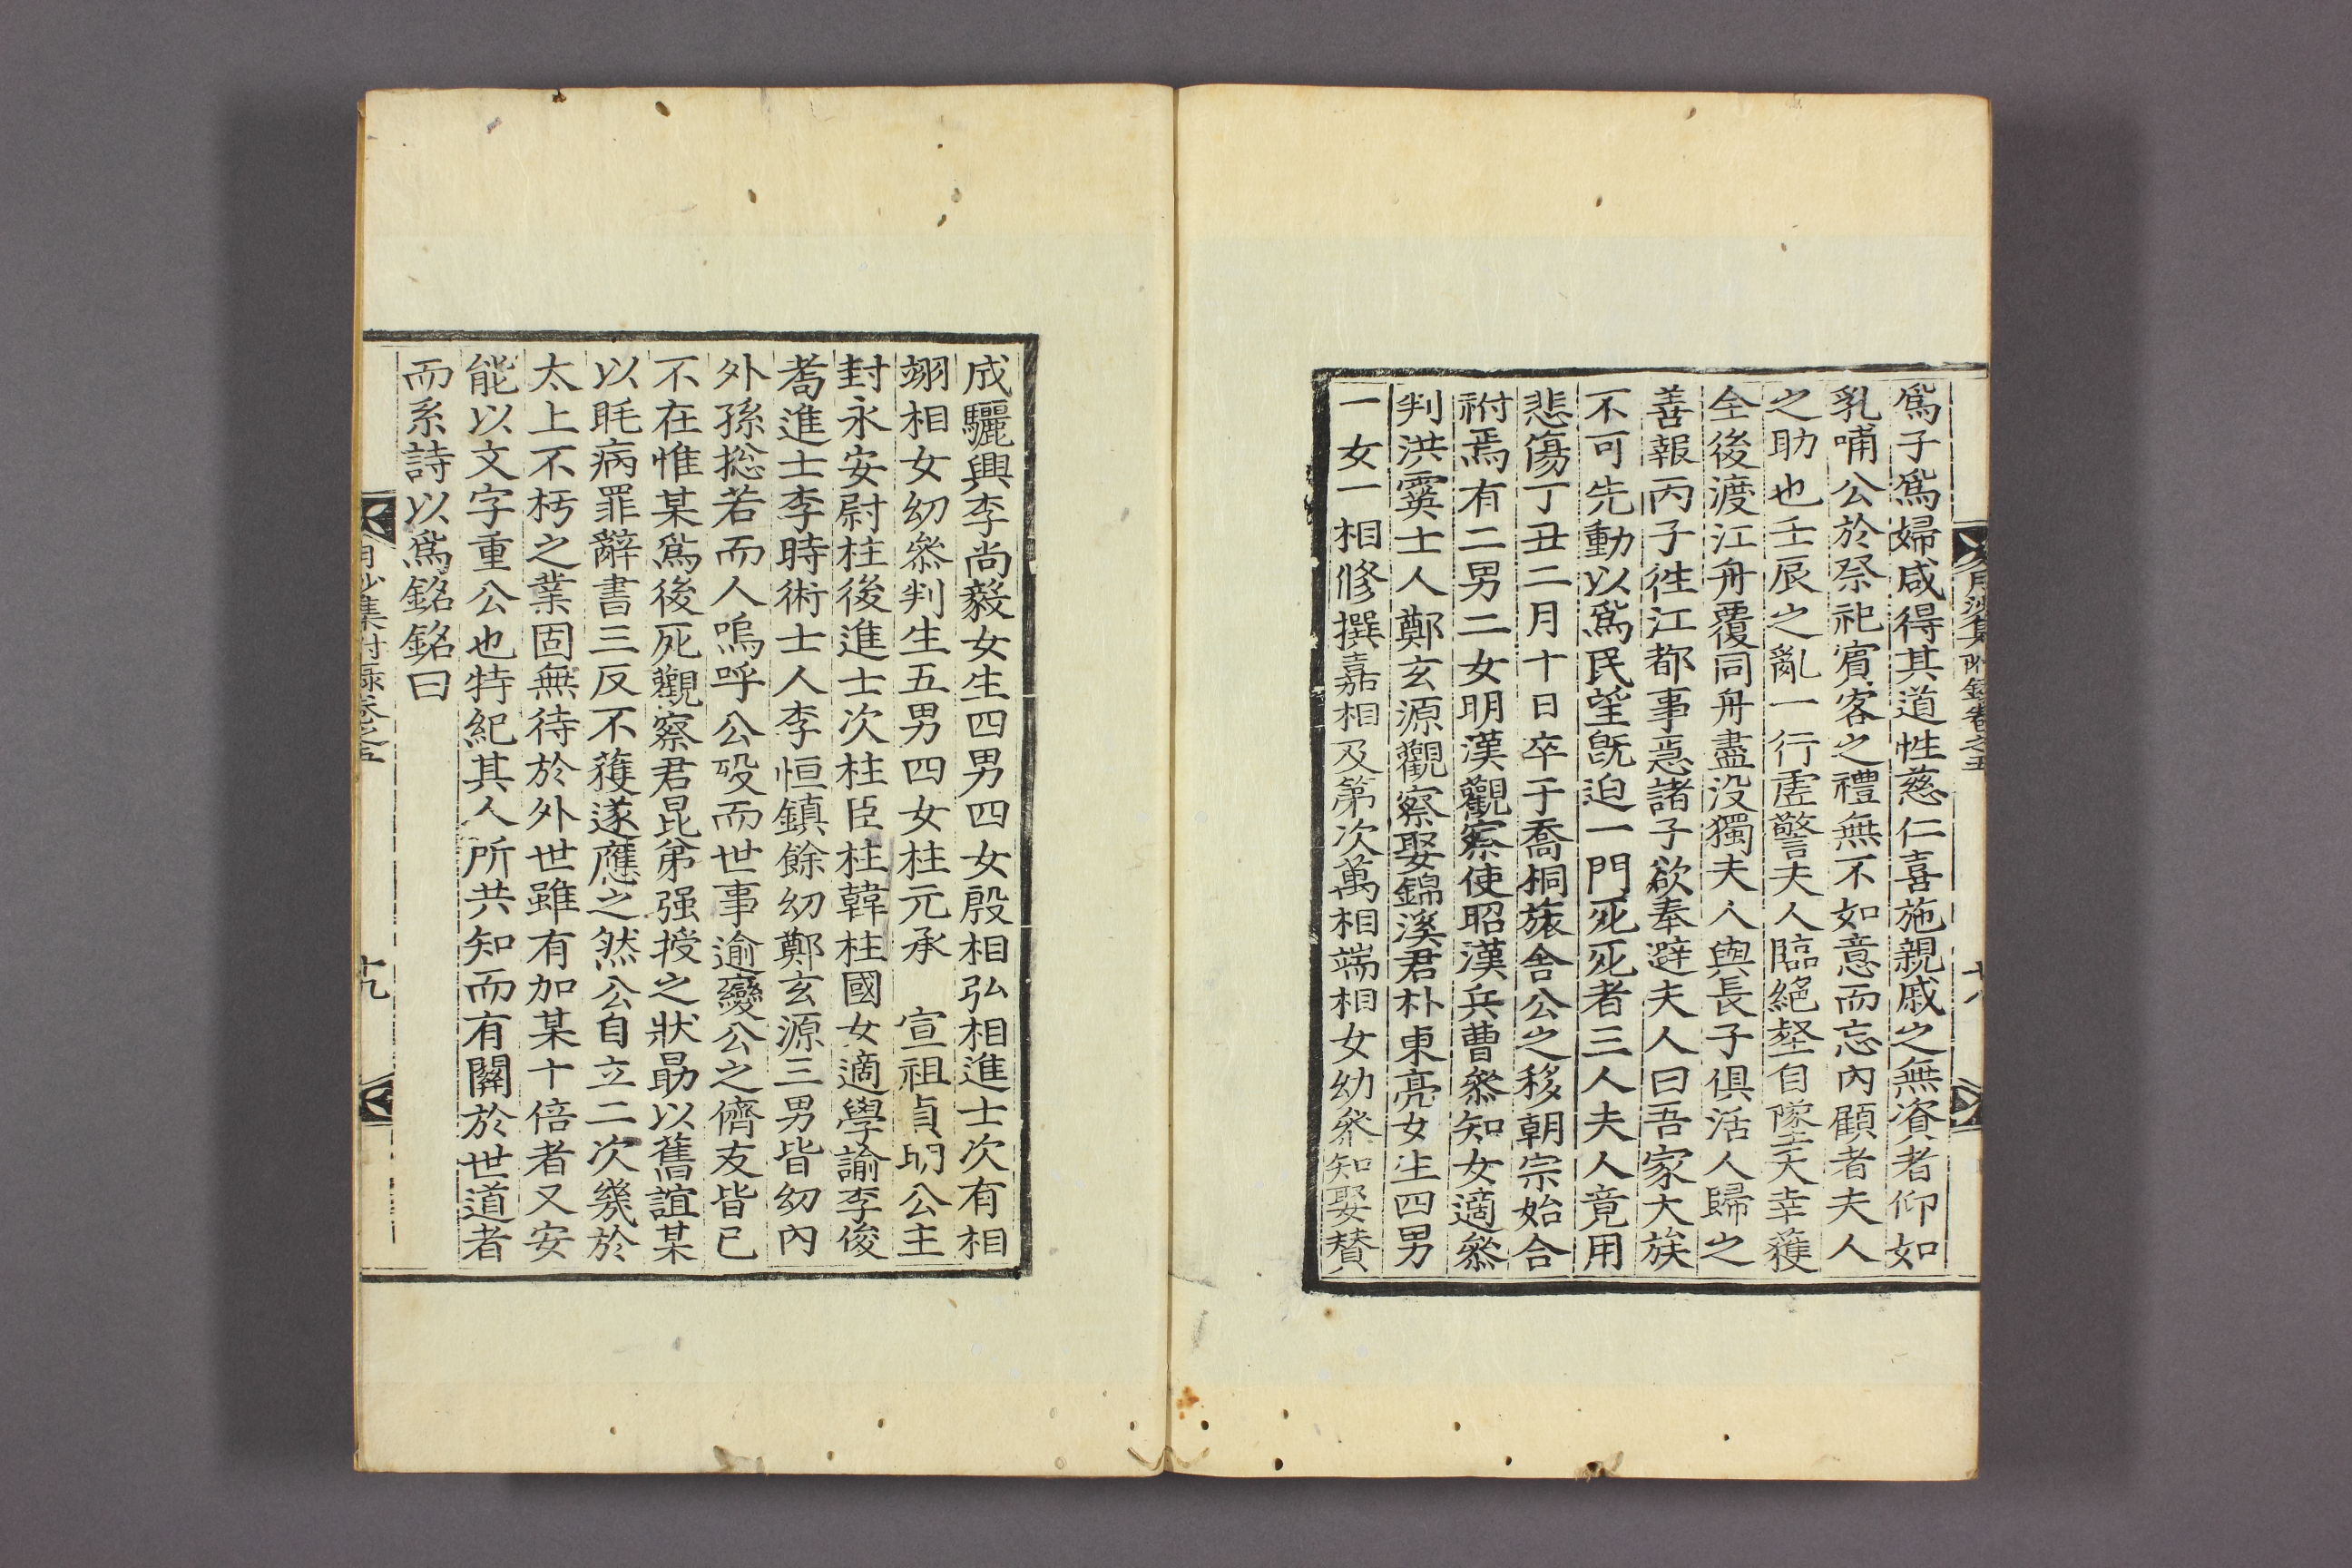 月沙集附錄卷之五
十八
爲子爲婦咸得其道性慈仁喜施親戚之無資者仰如
乳哺公於祭祀賓客之禮無不如意而忘內顧者夫人
之助也壬辰之亂一行虛警夫人臨絕壑自墜天幸獲
全後渡江舟覆同舟盡沒獨夫人與長子俱活人歸之
善報丙子徃江都事急諸子欲奉避夫人曰吾家大族
不可先動以爲民望旣迫一門死死者三人夫人竟用
悲傷丁丑二月十日卒于喬桐旅舍公之移朝宗始合
祔焉有二男二女明漢觀察使昭漢兵曹叅知女適叅
判洪霙士人鄭玄源觀察娶錦溪君朴東亮女生四男
一女一相修撰嘉相及第次萬相端相女幼叅知娶贊
成驪興李尚毅女生四男四女殷相弘相進士次有相
翊相女幼叅判生五男四女柱元承　宣祖貞明公主
封永安尉柱後進士次柱臣柱韓柱國女適學諭李俊
耉進士李時術士人李恒鎮餘幼鄭玄源三男皆幼內
外孫捴若而人嗚呼公歿而世事逾變公之儕友皆已
不在惟某爲後死觀察君昆弟强授之狀勗以舊誼某
以眊病罪辭書三反不獲遂應之然公自立二次幾於
太上不朽之業固無待於外世雖有加某十倍者又安
能以文字重公也特紀其人所共知而有關於世道者
而系詩以爲銘銘曰
月沙集附錄卷之五
十九